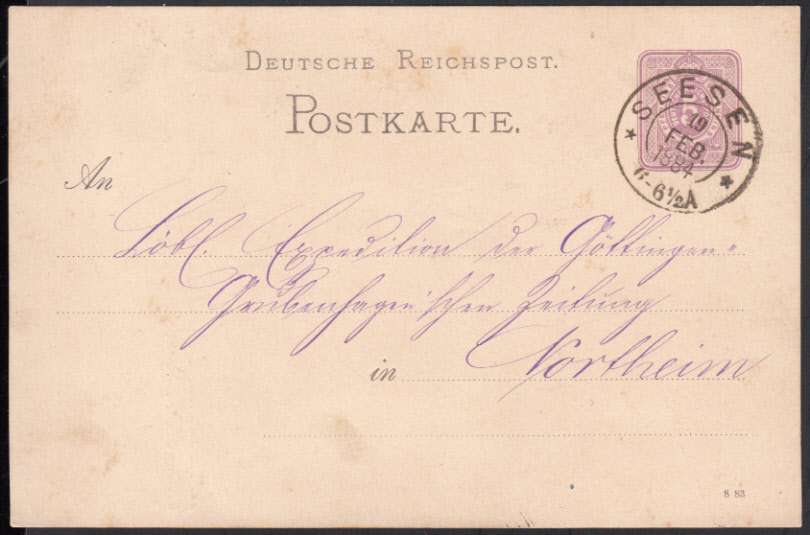 DEUTSCHE REICHSPOST.
POSTKARTE.
SEESEN
19
FEB.
1884
6-6½A
An
Löbl. Expedition der Göttingen-
Grubenhagen'schen Zeitung
in Northeim
8 83